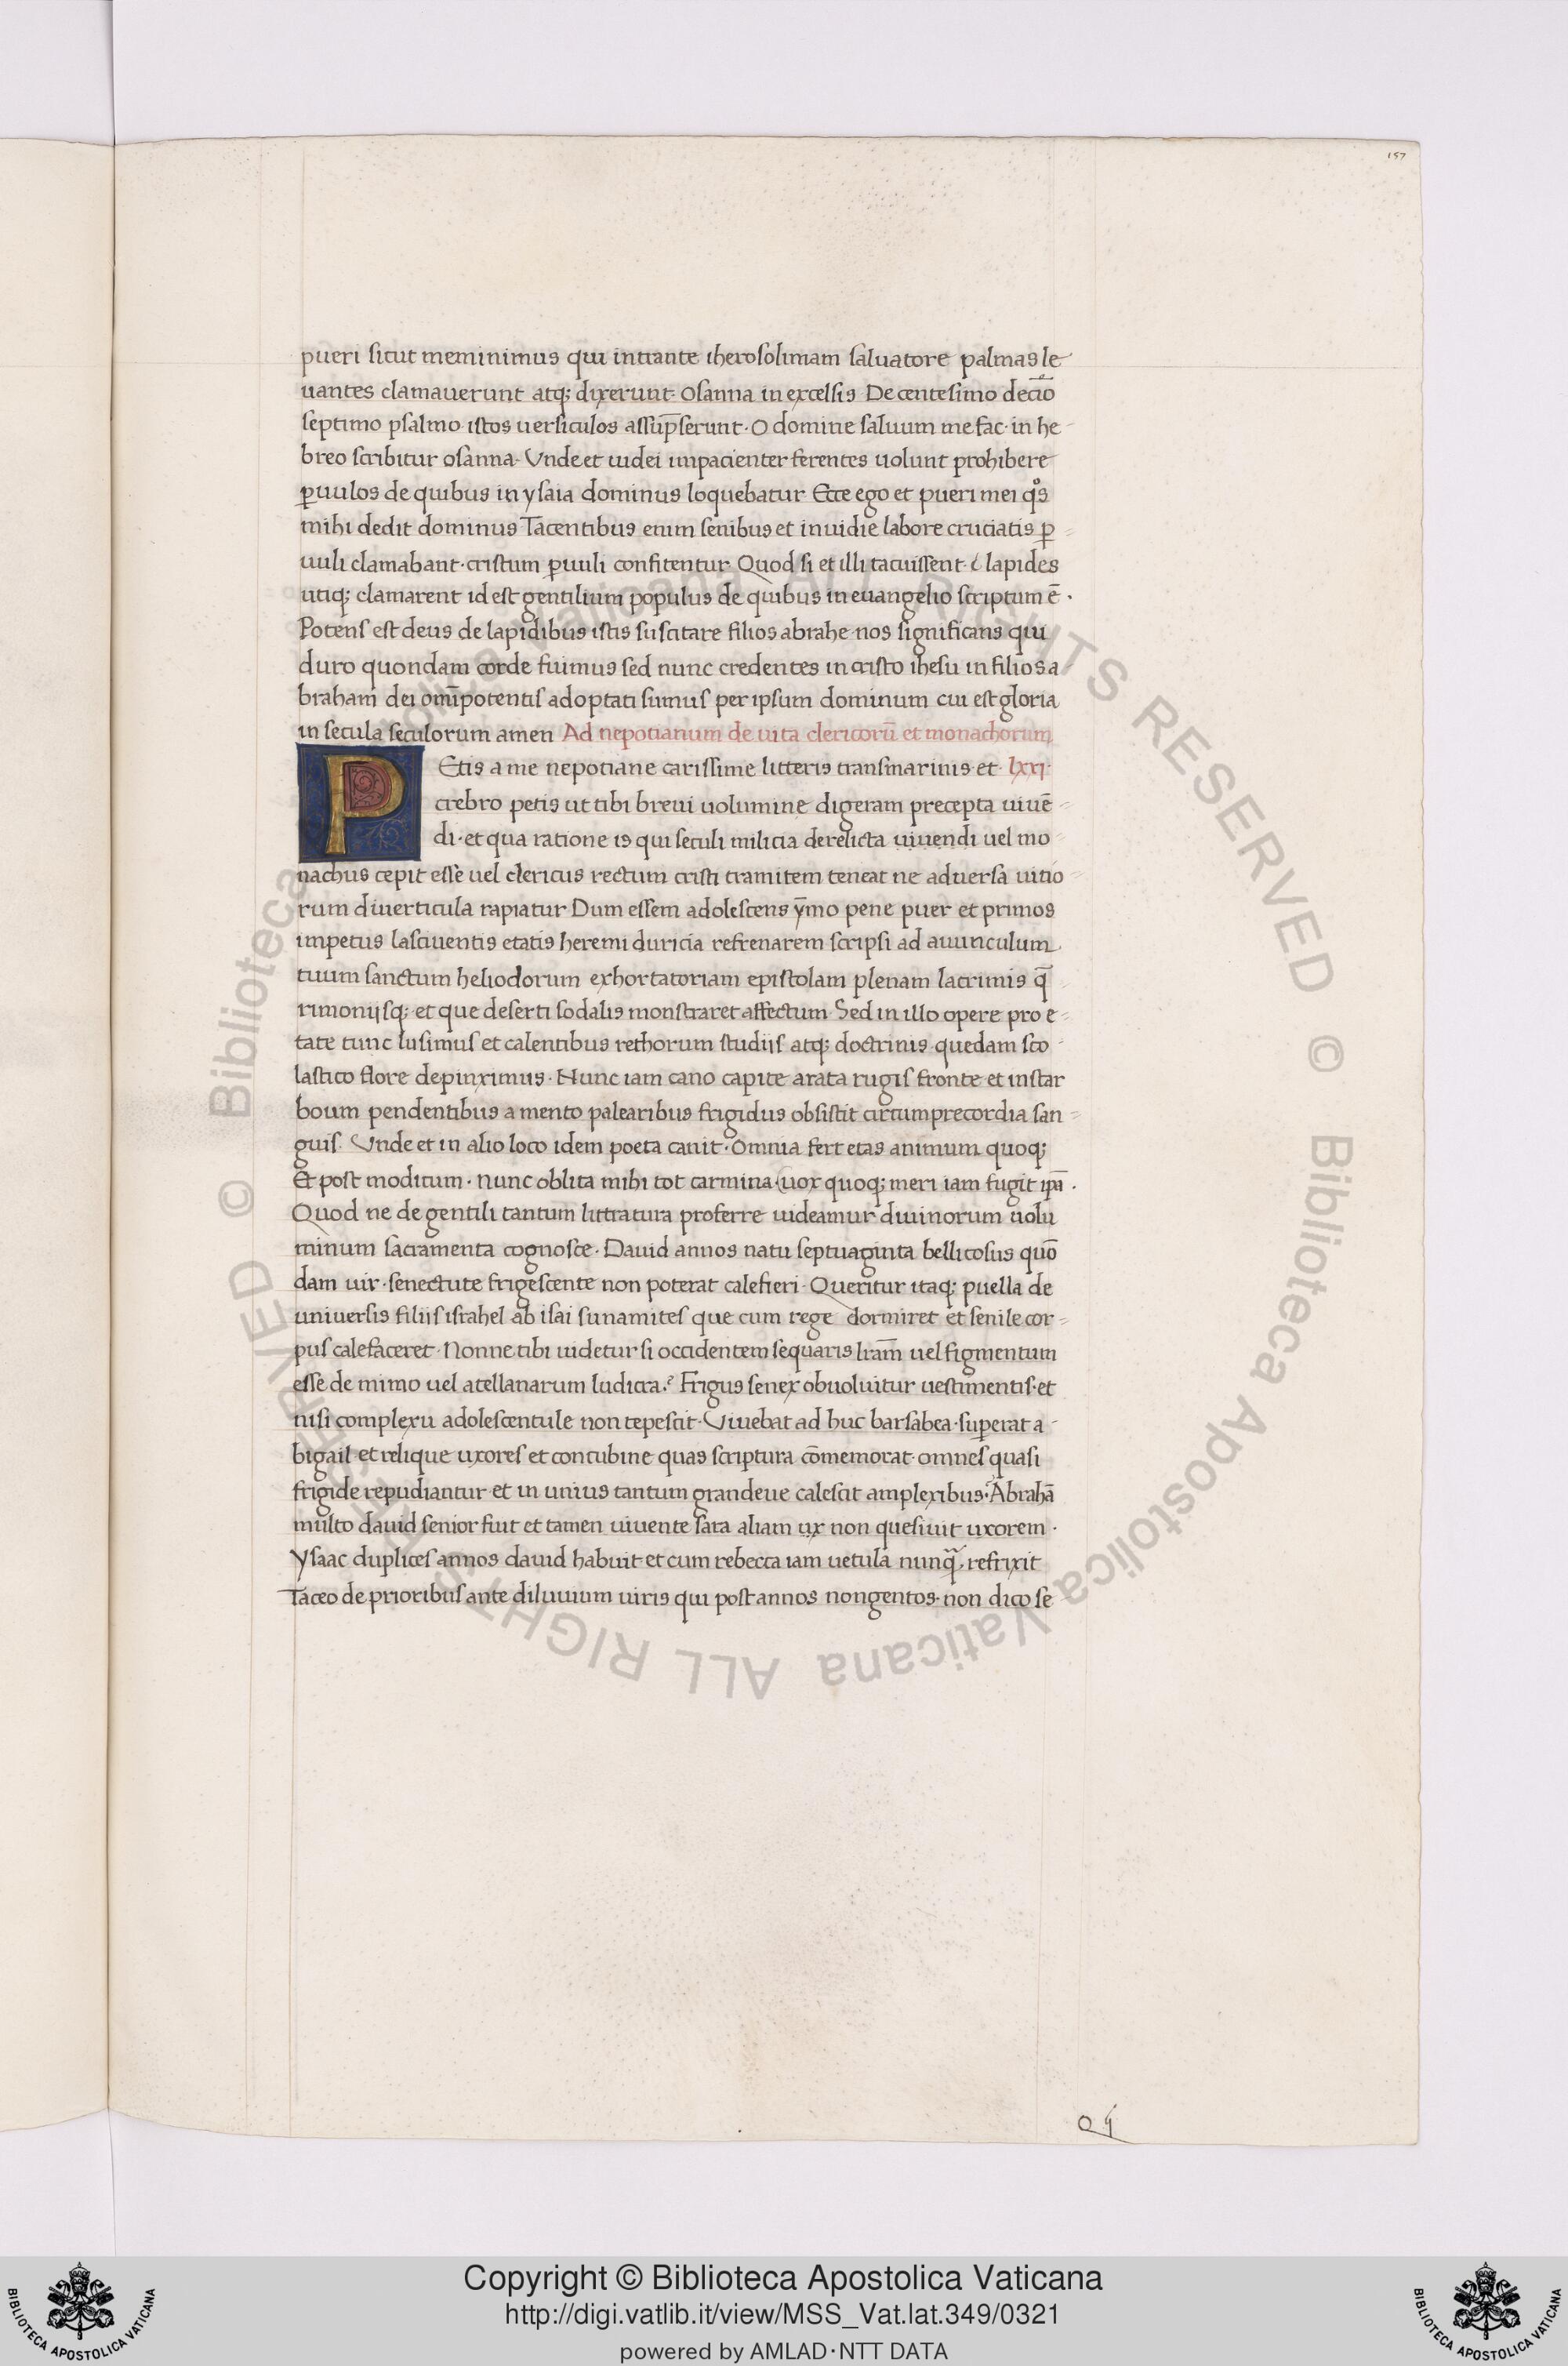 157
pueri sicut meminimus qui intrante iherosolimam saluatore palmas le
uantes clamauerunt atq; dixerunt· Osanna in excelsis De centesimo decīo
septimo psalmo istos uersiculos assūp̄serunt· O domine saluum me fac· in he-
breo scribitur osanna· Vnde et iudei impacienter ferentes uolunt prohibere
ꝑuulos de quibus in ysaia dominus loquebatur Ecce ego et pueri mei qͦs
mihi dedit dominus Tacentibus enim senibus et inuidie labore cruciatis ꝑ-
uuli clamabant· cristum ꝑuuli confitentur Quod si et illi tacuissent· lapides
utiq; clamarent id est gentilium populus de quibus in euangelio scriptum ē·
Potens est deus de lapidibus istis suscitare filios abrahe· nos significans qui
duro quondam corde fuimus sed nunc credentes in cristo ihesu in filios a-
braham dei omīpotentis adoptati sumus per ipsum dominum cui est gloria
in secula seculorum amen Ad nepotianum de uita clericorū et monachorum
PEtis a me nepotiane carissime litteris transmarinis et· lxxi·
crebro petis ut tibi breui uolumine digeram precepta uiuē-
di· et qua ratione is qui seculi milicia derelicta uiuendi uel mo-
nachus cepit esse uel clericus rectum cristi tramitem teneat ne aduersa uitio-
rum diuerticula rapiatur Dum essem adolescens ȳmo pene puer et primos
impetus lasciuentis etatis heremi duricia refrenarem scripsi ad auunculum
tuum sanctum heliodorum exhortatoriam epistolam plenam lacrimis q̄
rimonijsq; et que deserti sodalis monstraret affectum Sed in illo opere pro e-
tate tunc lusimus et calentibus rethorum studijs atq; doctrinis quedam sco-
lastico flore depinximus· Nunc iam cano capite arata rugis fronte et instar
boum pendentibus a mento palearibus frigidus obsistit circumprecordia san-
guis· Vnde et in alio loco idem poeta canit· Omnia fert etas animum quoq;
Et post modicum· nunc oblita mihi tot carmina· uox quoq; meri iam fugit ip̄a·
Quod ne de gentili tantum litteratura proferre uideamur diuinorum uolu
minum sacramenta cognosce· Dauid annos natu septuaginta bellicosus quō
dam uir· senectute frigescente non poterat calefieri· Queritur itaq; puella de
uniuersis filijs israhel ab isai sunamites que cum rege dormiret et senile cor-
pus calefaceret· Nonne tibi uidetur si occidentem sequaris lr̄am uel figmentum
esse de mimo uel atellanarum ludicra? Frigus senex obuoluitur uestimentis· et
nisi complexu adolescentule non tepescit· Viuebat ad huc barsabea· superat a-
bigail et relique uxores et concubine quas scriptura cōmemorat· omnes quasi
frigide repudiantur et in unius tantum grandeue calescit amplexibus· Abrahā
multo dauid senior fuit et tamen uiuente sara aliam ux non quesiuit uxorem·
Ysaac duplices annos dauid habuit et cum rebecca iam uetula nunq̄ refrixit
Taceo de prioribus ante diluuium uiris qui post annos nongentos· non dico se
Copyright © Biblioteca Apostolica Vaticana
http://digi.vatlib.it/view/MSS_Vat.lat.349/0321
powered by AMLAD·NTT DATA
BIBLIOTECA APOSTOLICA VATICANA
BIBLIOTECA APOSTOLICA VATICANA
© Biblioteca Apostolica Vaticana ALL RIGHTS RESERVED © Biblioteca Apostolica Vaticana ALL RIGHTS RESERVED